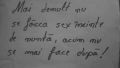 Mai demult nu
se făcea sex înainte
de nuntă, acum nu
se mai face după!